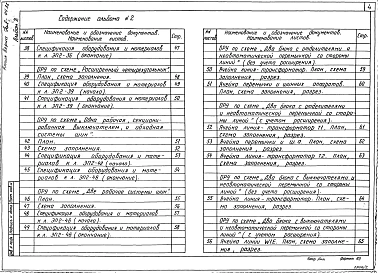 4
Содержание альбома №2
№№ листов
Наименование и обозначение документов. Наименование листов.
Стр.
38 Спецификация оборудования и материалов к л. ЭП2-38 (окончание) 47
ОРУ по схеме „Расширенный четырехугольник"
39 План, схема заполнения. 48
40 Спецификация оборудования и материалов к л. ЭП2-39 (начало). 49
41 Спецификация оборудования и материалов к л. ЭП2-39 (окончание). 50
ОРУ по схеме „Одна рабочая, секционированная выключателем и обходная системы шин"
42 План. 51
43 Схема заполнения. 52
44 Спецификация оборудования и материалов к л. ЭП2-42 (начало). 53
45 Спецификация оборудования и материалов к л. ЭП2-42 (окончание). 54
ОРУ по схеме „Две рабочие системы шин"
46 План. 55
47 Схема заполнения. 56
48 Спецификация оборудования и материалов к л. ЭП2-46 (начало). 57
49 Спецификация оборудования и материалов к л. ЭП2-46 (окончание). 58
Наименование и обозначение документов. Наименование листов.
Стр.
ОРУ по схеме „Два блока с отделителями и неавтоматической перемычкой со стороны линий" (без учета расширения).
50 Ячейка линия-трансформатор. План, схема заполнения, разрез. 59
51 Ячейка перемычки и шинных аппаратов. План, схема заполнения, разрез. 60
ОРУ по схеме „Два блока с отделителями и неавтоматической перемычкой со стороны линий" (с учетом расширения)
52 Ячейка линия-трансформатор Т1. План, схема заполнения, разрез. 61
53 Ячейка перемычки и План, схема заполнения, разрез 62
54 Ячейка линия-трансформатор Т2. План, схема заполнения, разрез. 63
ОРУ по схеме „Два блока с выключателями и неавтоматической перемычкой со стороны линий" (без учета расширения)
55 Ячейка линия-трансформатор. План, схема заполнения, разрез. 64
ОРУ по схеме „Два блока с выключателями и неавтоматической перемычкой со стороны линий" (с учетом расширения).
56 Ячейка линии W1E. План, схема заполнения, разрез. 65